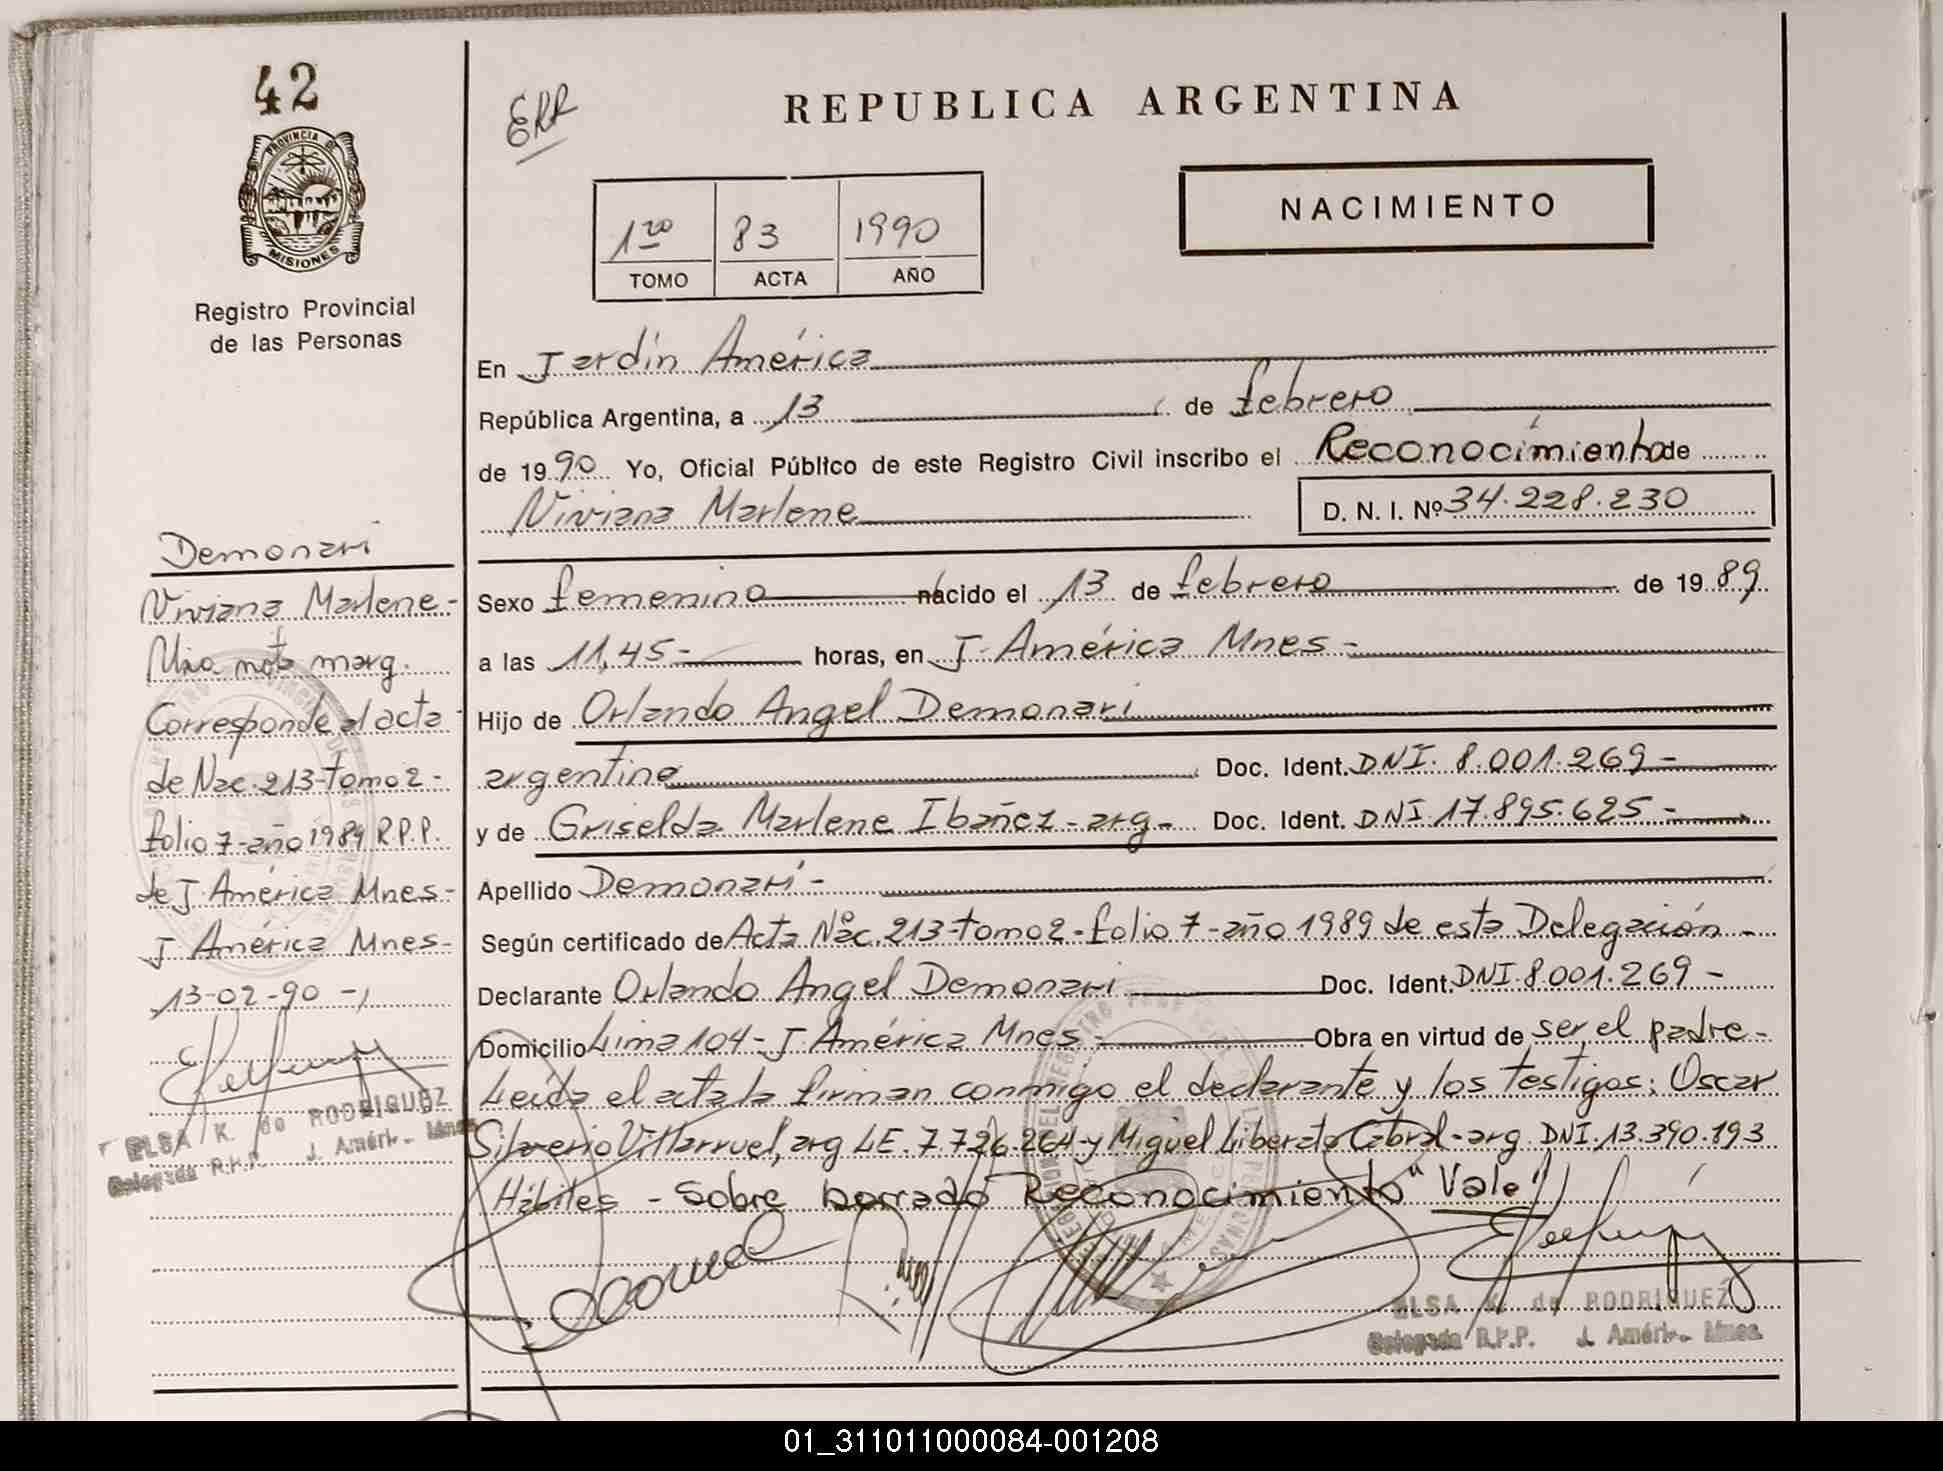 42
PROVINCIA DE
MISIONES
Registro Provincial
de las Personas
ERR
REPUBLICA ARGENTINA
NACIMIENTO
1ro 83 1990
TOMO ACTA AÑO
En Jardín América
República Argentina, a 13 de febrero
de 1990 Yo, Oficial Público de este Registro Civil inscribo el Reconocimiento de
Viviana Marlene D. N. I. Nº 34.228.230
Sexo femenino nacido el 13 de febrero de 1989
a las 11,45- horas, en J. América Mnes-
Hijo de Orlando Angel Demonari
argentina Doc. Ident. DNI. 8.001.269-
y de Griselda Marlene Ibañez-arg- Doc. Ident. DNI.17.895.625-
Apellido Demonari-
Según certificado de Acta Nac. 213-tomo2-folio 7-año 1989 de esta Delegación-
Declarante Orlando Angel Demonari Doc. Ident. DNI.8.001.269-
Domicilio Lima 104-J. América Mnes- Obra en virtud de ser el padre-
Leída el acta la firman conmigo el declarante y los testigos: Oscar
Silverio Villarruel, arg LE. 7.726.264-y Miguel Liberato Cabral-arg. DNI.13.390.193
Hábiles - Sobre borrado Reconocimiento "Vale"
ELSA K. de RODRIGUEZ
Delegada R.P.P. J. Améri- Mnes.
Demonari
Viviana Marlene-
nota marg.
Corresponde al acta-
de Nac. 213-tomo2-
folio 7-año 1989 R.P.P.
de J. América Mnes-
J América Mnes-
13-02-90-
ELSA K. de RODRIGUEZ
Delegada R.P.P. J. Améri- Mnes
01_311011000084-001208